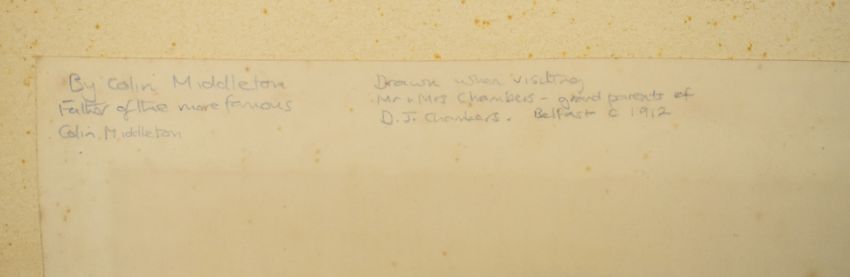 By Colin Middleton
Father of the more famous
Colin Middleton
Drawn when visiting
Mr & Mrs Chambers - grand parents of
D.J. Chambers. Belfast c 1912